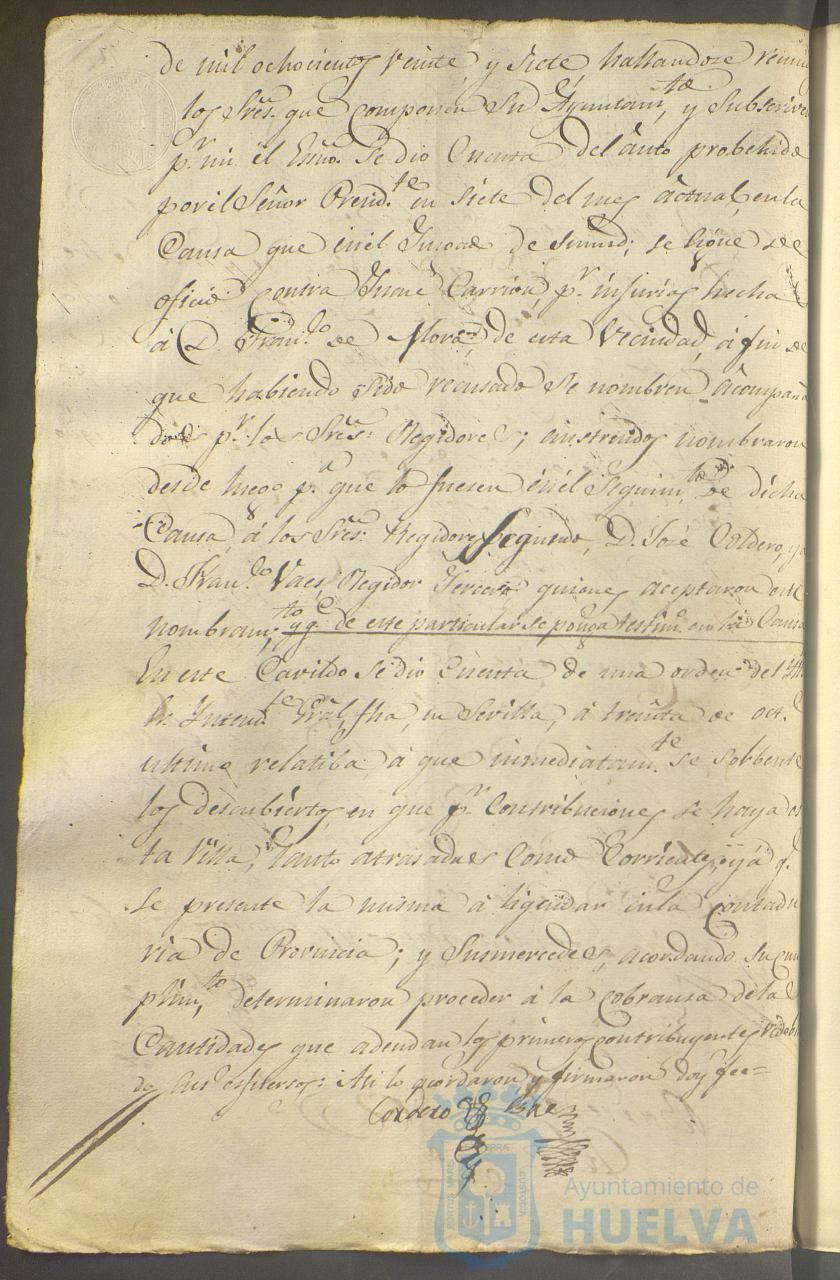 de mil ochocientos veinte y siete hallandose reuni
los Sres. que componen su Ayuntamto, y subscriven
pr. mi el Essno. Se dio Cuenta del auto probehido
por el Señor Presidte. en siete del mes actual, en la
Causa que en el se sigue de
oficio contra Carrion, pr. injurias hecha
á D. Franco. de Mora, de esta Vecindad, á fin de
que habiendo sido recusado se nombren acompaña
dos pr. los Sres. Regidores; nombraron
desde luego pa. que lo fuesen en el seguimto. de dicha
Causa, á los Sres. Regidores Segundo, D. José Cordero, y a
D. Franco. Vaes, Regidor Tercero quienes aceptaron este
nombramto. y qe. de este particular se ponga testimo. en la Causa
En este Cavildo se dio Cuenta de una orden del
Sr. Intendte. Gral, fha, en Sevilla, á treinta de octe.
ultimo relatiba á que inmediatamte. se solbente
los descubiertos en que pr. Contribuciones se haya es
ta Villa, tanto atrasadas Como Corrientes, y á q.
se presente la misma á liquidar en la Contadu
ria de Provincia; y Susmercedes, acordando su cum
plimto, determinaron proceder á la cobransa de las
Cantidades que adeudan los primeros contribuyentes, redoblan
do sus esfuersos: Asi lo acordaron y firmaron doy fee=
Cordero Vaes
PORTUS MARIS
TERRÆ
CUSTODIA
Ayuntamiento de
HUELVA